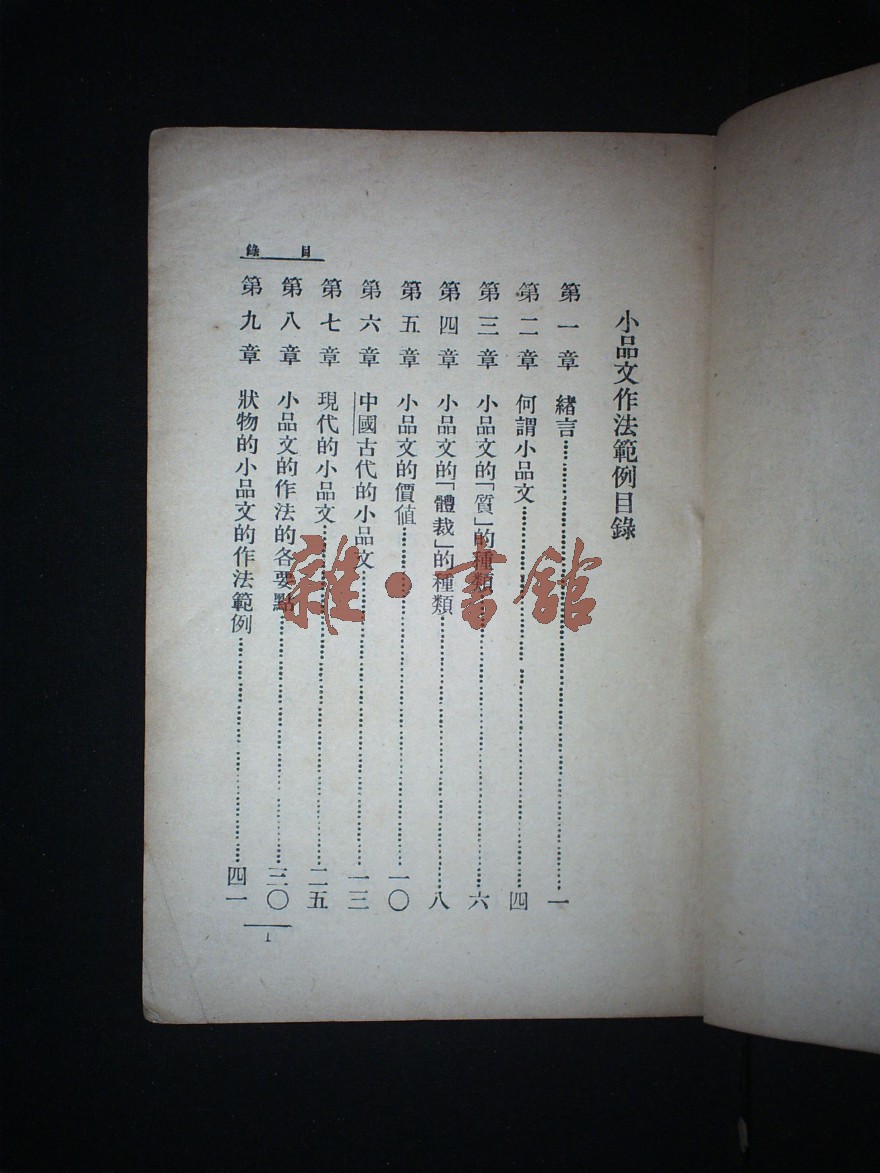 小品文作法範例目錄
第一章 緒言…………一
第二章 何謂小品文…………四
第三章 小品文的「質」的種類…………六
第四章 小品文的「體裁」的種類…………八
第五章 小品文的價值…………一〇
第六章 中國古代的小品文…………一三
第七章 現代的小品文…………二五
第八章 小品文的作法的各要點…………三〇
第九章 狀物的小品文的作法範例…………四一
目錄
1
雜·書館